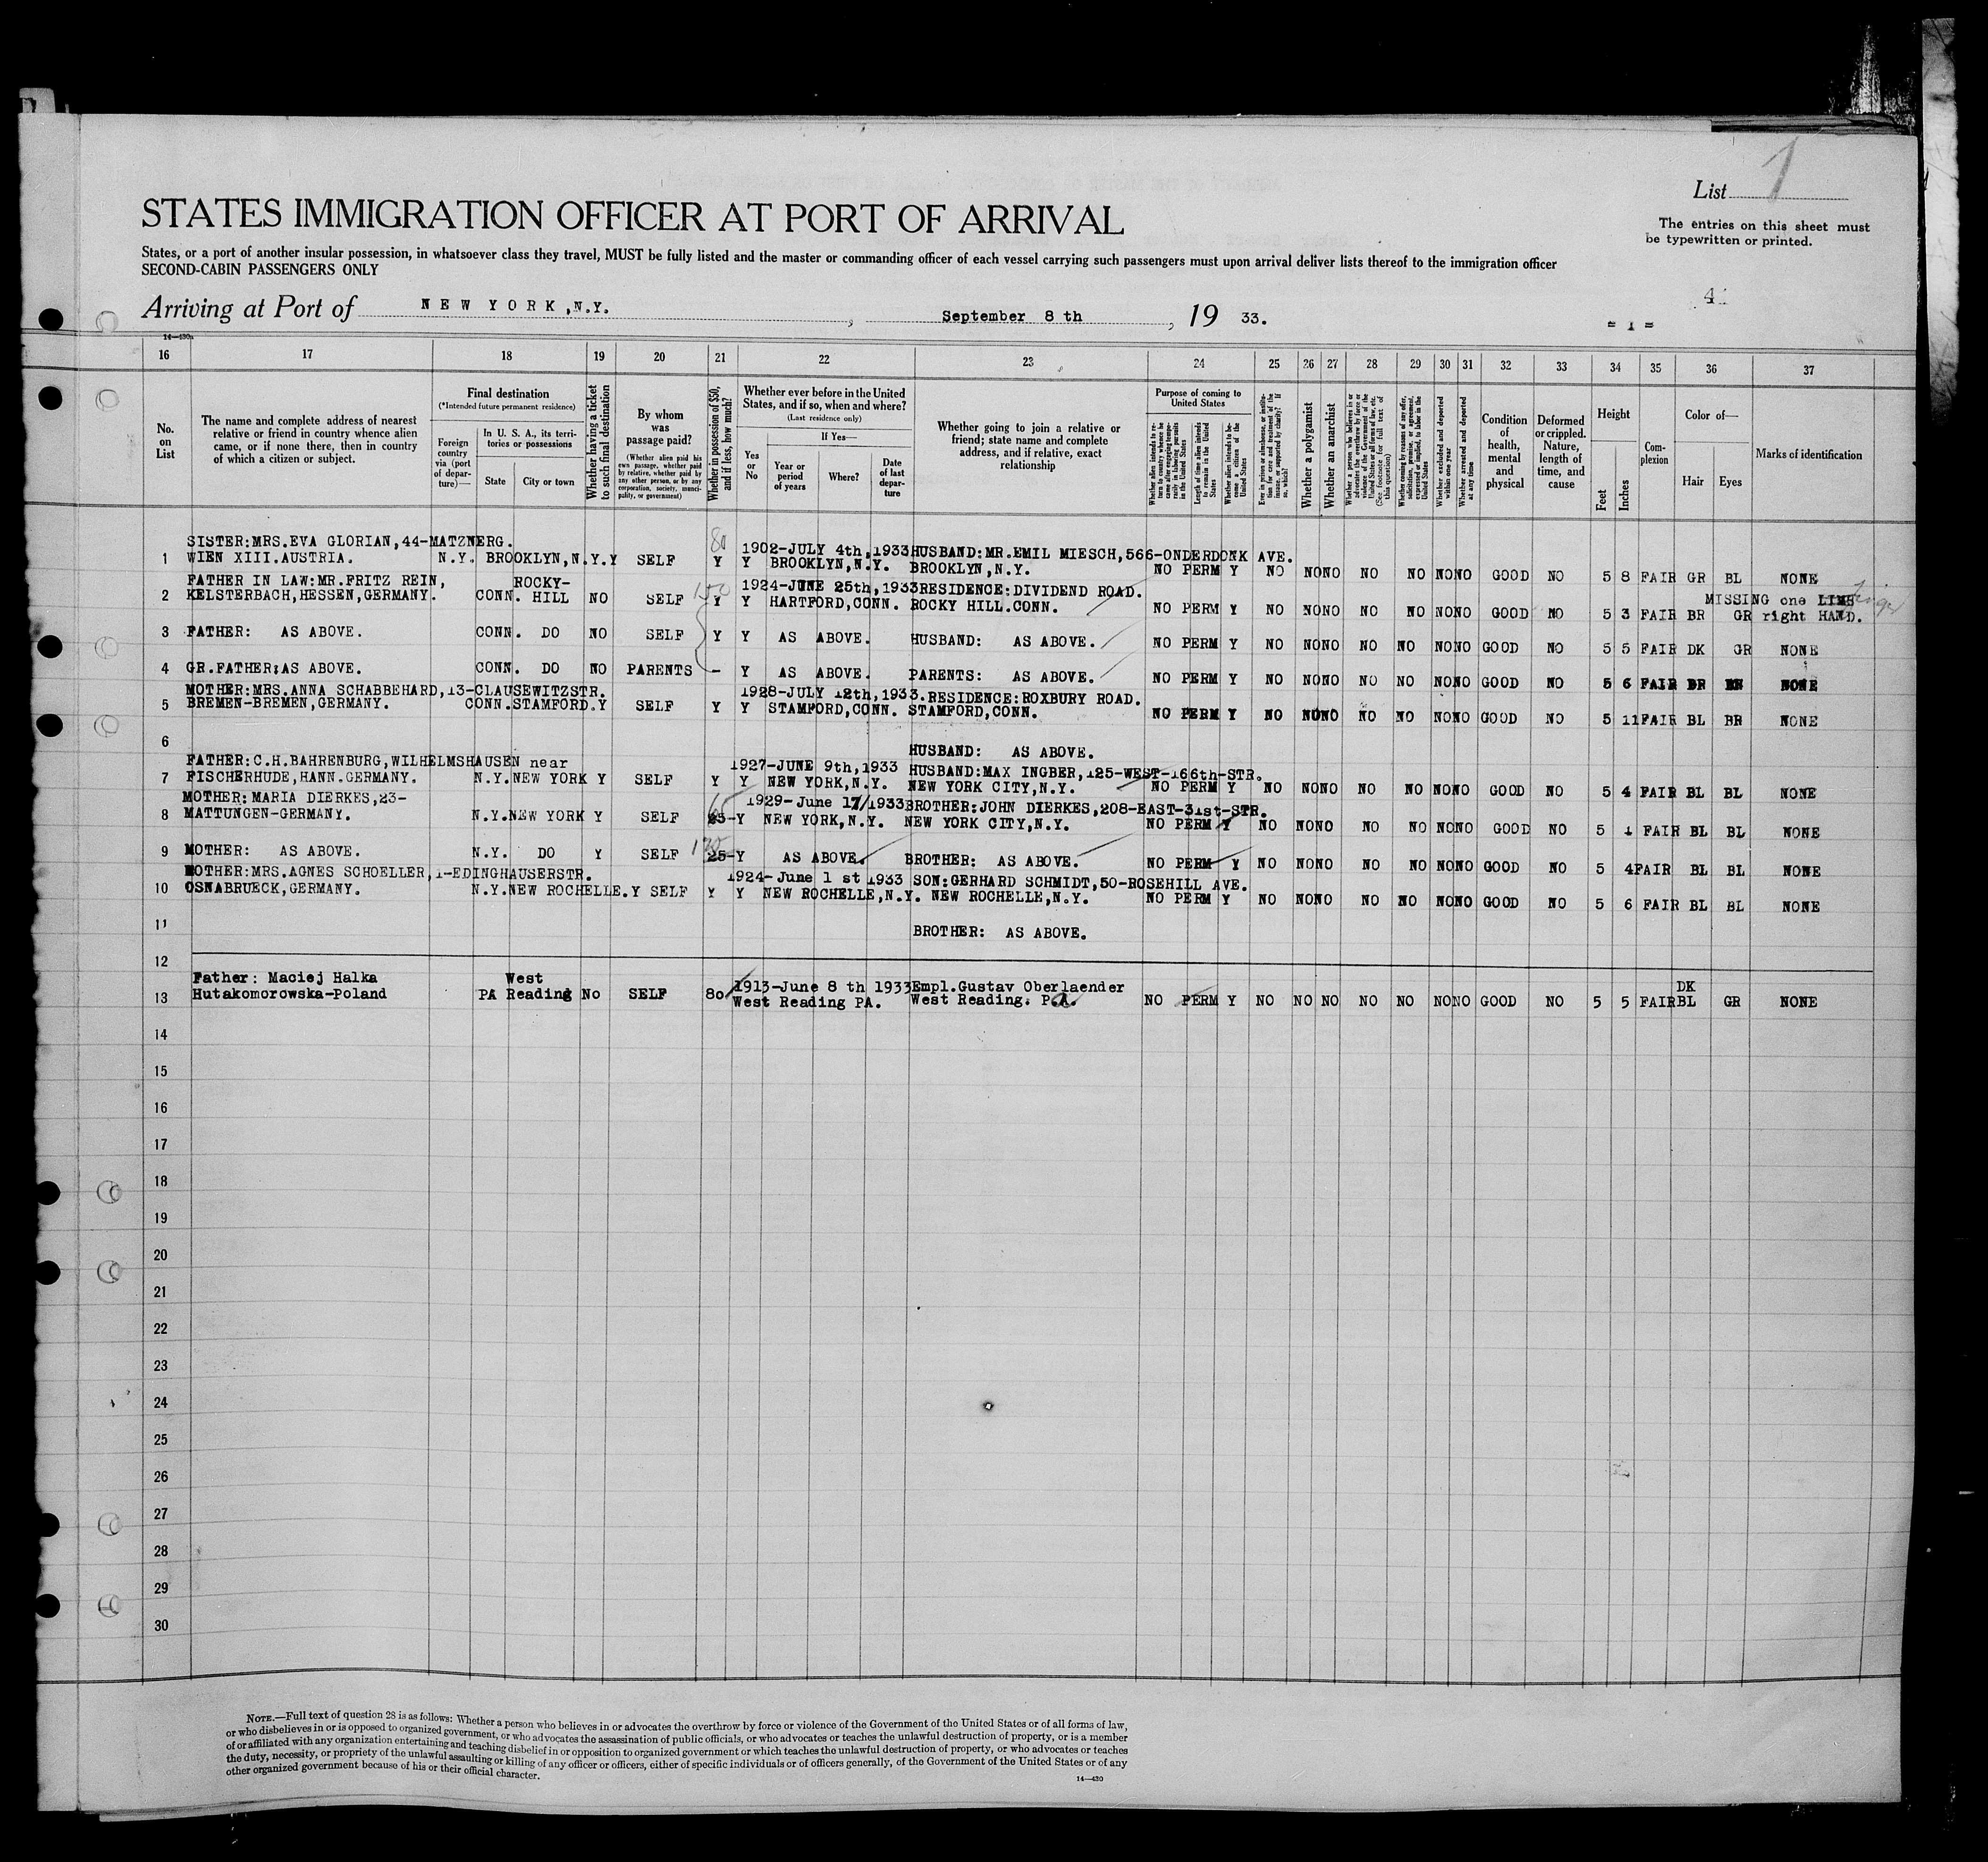 List 1
STATES IMMIGRATION OFFICER AT PORT OF ARRIVAL
The entries on this sheet must
be typewritten or printed.
States, or a port of another insular possession, in whatsoever class they travel, MUST be fully listed and the master or commanding officer of each vessel carrying such passengers must upon arrival deliver lists thereof to the immigration officer
SECOND-CABIN PASSENGERS ONLY
Arriving at Port of NEW YORK,N.Y. , September 8 th , 19 33.
= 1 =
14—430a
16 17 18 19 20 21 22 23 24 25 26 27 28 29 30 31 32 33 34 35 36 37
No. on List
The name and complete address of nearest
relative or friend in country whence alien
came, or if none there, then in country
of which a citizen or subject.
Final destination
(*Intended future permanent residence)
Foreign country via (port of departure)—
In U. S. A., its territories or possessions
State
City or town
Whether having a ticket to such final destination
By whom was passage paid?
(Whether alien paid his own passage, whether paid by relative, whether paid by any other person, or by any corporation, society, municipality, or government)
Whether in possession of $50, and if less, how much?
Whether ever before in the United
States, and if so, when and where?
(Last residence only)
Yes or No
If Yes—
Year or period of years
Where?
Date of last departure
Whether going to join a relative or
friend; state name and complete
address, and if relative, exact
relationship
Purpose of coming to United States
Whether alien intends to return to country whence he came after engaging temporarily in laboring pursuits in the United States
Length of time alien intends to remain in the United States
Whether alien intends to become a citizen of the United States
Ever in prison or almshouse, or institution for care and treatment of the insane, or supported by charity? If so, which?
Whether a polygamist
Whether an anarchist
Whether a person who believes in or advocates the overthrow by force or violence of the Government of the United States or all forms of law, etc. (See footnote for full text of this question)
Whether coming by reasons of any offer, solicitation, promise, or agreement, expressed or implied, to labor in the United States
Whether excluded and deported within one year
Whether arrested and deported at any time
Condition of health, mental and physical
Deformed or crippled. Nature, length of time, and cause
Height
Feet
Inches
Complexion
Color of—
Hair
Eyes
Marks of identification
SISTER:MRS.EVA GLORIAN,44-MATZNERG. 80 1902-JULY 4th,1933 HUSBAND:MR.EMIL MIESCH,566-ONDERDONK AVE.
1 WIEN XIII.AUSTRIA. N.Y. BROOKLYN,N.Y. Y SELF Y Y BROOKLYN,N.Y. BROOKLYN,N.Y. NO PERM Y NO NO NO NO NO NO NO GOOD NO 5 8 FAIR GR BL NONE
FATHER IN LAW:MR.FRITZ REIN, ROCKY- 150 1924-JUNE 25th,1933 RESIDENCE:DIVIDEND ROAD. MISSING one LIMB finger
2 KELSTERBACH,HESSEN,GERMANY. CONN. HILL NO SELF Y Y HARTFORD,CONN. ROCKY HILL.CONN. NO PERM Y NO NO NO NO NO NO NO GOOD NO 5 3 FAIR BR GR right HAND.
3 FATHER: AS ABOVE. CONN. DO NO SELF Y Y AS ABOVE. HUSBAND: AS ABOVE. NO PERM Y NO NO NO NO NO NO NO GOOD NO 5 5 FAIR DK GR NONE
4 GR.FATHER:AS ABOVE. CONN. DO NO PARENTS - Y AS ABOVE. PARENTS: AS ABOVE. NO PERM Y NO NO NO NO NO NO NO GOOD NO 5 6 FAIR BR NONE
MOTHER:MRS.ANNA SCHABBEHARD,13-CLAUSEWITZSTR. 1928-JULY 12th,1933. RESIDENCE:ROXBURY ROAD.
5 BREMEN-BREMEN,GERMANY. CONN. STAMFORD. Y SELF Y Y STAMFORD,CONN. STAMFORD,CONN. NO PERM Y NO NO NO NO NO NO NO GOOD NO 5 11 FAIR BL BR NONE
6 HUSBAND: AS ABOVE.
FATHER:C.H.BAHRENBURG,WILHELMSHAUSEN near 1927-JUNE 9th,1933 HUSBAND:MAX INGBER,125-WEST-166th-STR.
7 FISCHERHUDE,HANN.GERMANY. N.Y. NEW YORK Y SELF Y Y NEW YORK,N.Y. NEW YORK CITY,N.Y. NO PERM Y NO NO NO NO NO NO NO GOOD NO 5 4 FAIR BL BL NONE
MOTHER: MARIA DIERKES,23- 65 1929-June 17/1933 BROTHER:JOHN DIERKES,208-EAST-31st-STR.
8 MATTUNGEN-GERMANY. N.Y. NEW YORK Y SELF 25- Y NEW YORK,N.Y. NEW YORK CITY,N.Y. NO PERM Y NO NO NO NO NO NO NO GOOD NO 5 1 FAIR BL BL NONE
9 MOTHER: AS ABOVE. N.Y. DO Y SELF 25- Y AS ABOVE. BROTHER: AS ABOVE. NO PERM Y NO NO NO NO NO NO NO GOOD NO 5 4 FAIR BL BL NONE
MOTHER:MRS.AGNES SCHOELLER,1-EDINGHAUSERSTR. 1924-June 1 st 1933 SON:GERHARD SCHMIDT,50-ROSEHILL AVE.
10 OSNABRUECK,GERMANY. N.Y. NEW ROCHELLE. Y SELF Y Y NEW ROCHELLE,N.Y. NEW ROCHELLE,N.Y. NO PERM Y NO NO NO NO NO NO NO GOOD NO 5 6 FAIR BL BL NONE
11 BROTHER: AS ABOVE.
12
Father: Maciej Halka West 1913-June 8 th 1933 Empl.Gustav Oberlaender DK
13 Hutakomorowska-Poland PA Reading No SELF 80 West Reading PA. West Reading. P.A. NO PERM Y NO NO NO NO NO NO NO GOOD NO 5 5 FAIR BL GR NONE
14
15
16
17
18
19
20
21
22
23
24
25
26
27
28
29
30
NOTE.—Full text of question 28 is as follows: Whether a person who believes in or advocates the overthrow by force or violence of the Government of the United States or of all forms of law,
or who disbelieves in or is opposed to organized government, or who advocates the assassination of public officials, or who advocates or teaches the unlawful destruction of property, or is a member
of or affiliated with any organization entertaining and teaching disbelief in or opposition to organized government or which teaches the unlawful destruction of property, or who advocates or teaches
the duty, necessity, or propriety of the unlawful assaulting or killing of any officer or officers, either of specific individuals or of officers generally, of the Government of the United States or of any
other organized government because of his or their official character.
14—430